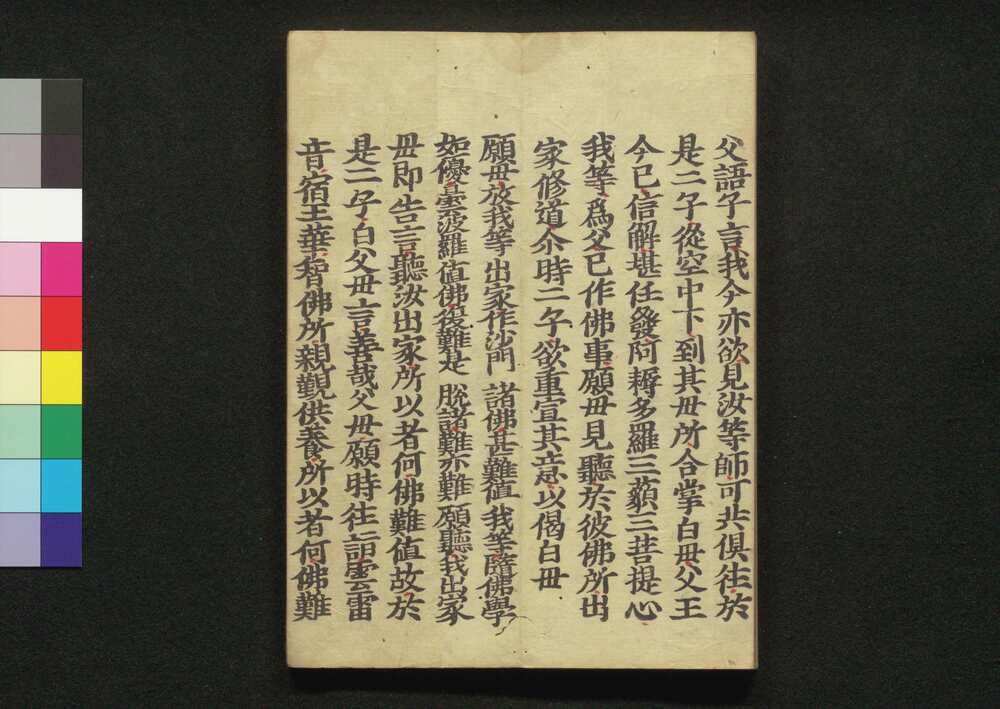 父語子言我今亦欲見汝等師可共俱往於
是二子從空中下到其母所合掌白母父王
今已信解堪任發阿耨多羅三藐三菩提心
我等爲父已作佛事願母見聽於彼佛所出
家修道尒時二子欲重宣其意以偈白母
願母放我等 出家作沙門 諸佛甚難値 我等隨佛學
如優曇波羅 値佛復難是 脫諸難亦難 願聽我出家
母即告言聽汝出家所以者何佛難値故於
是二子白父母言善哉父母願時往詣雲雷
音宿王華智佛所親覲供養所以者何佛難